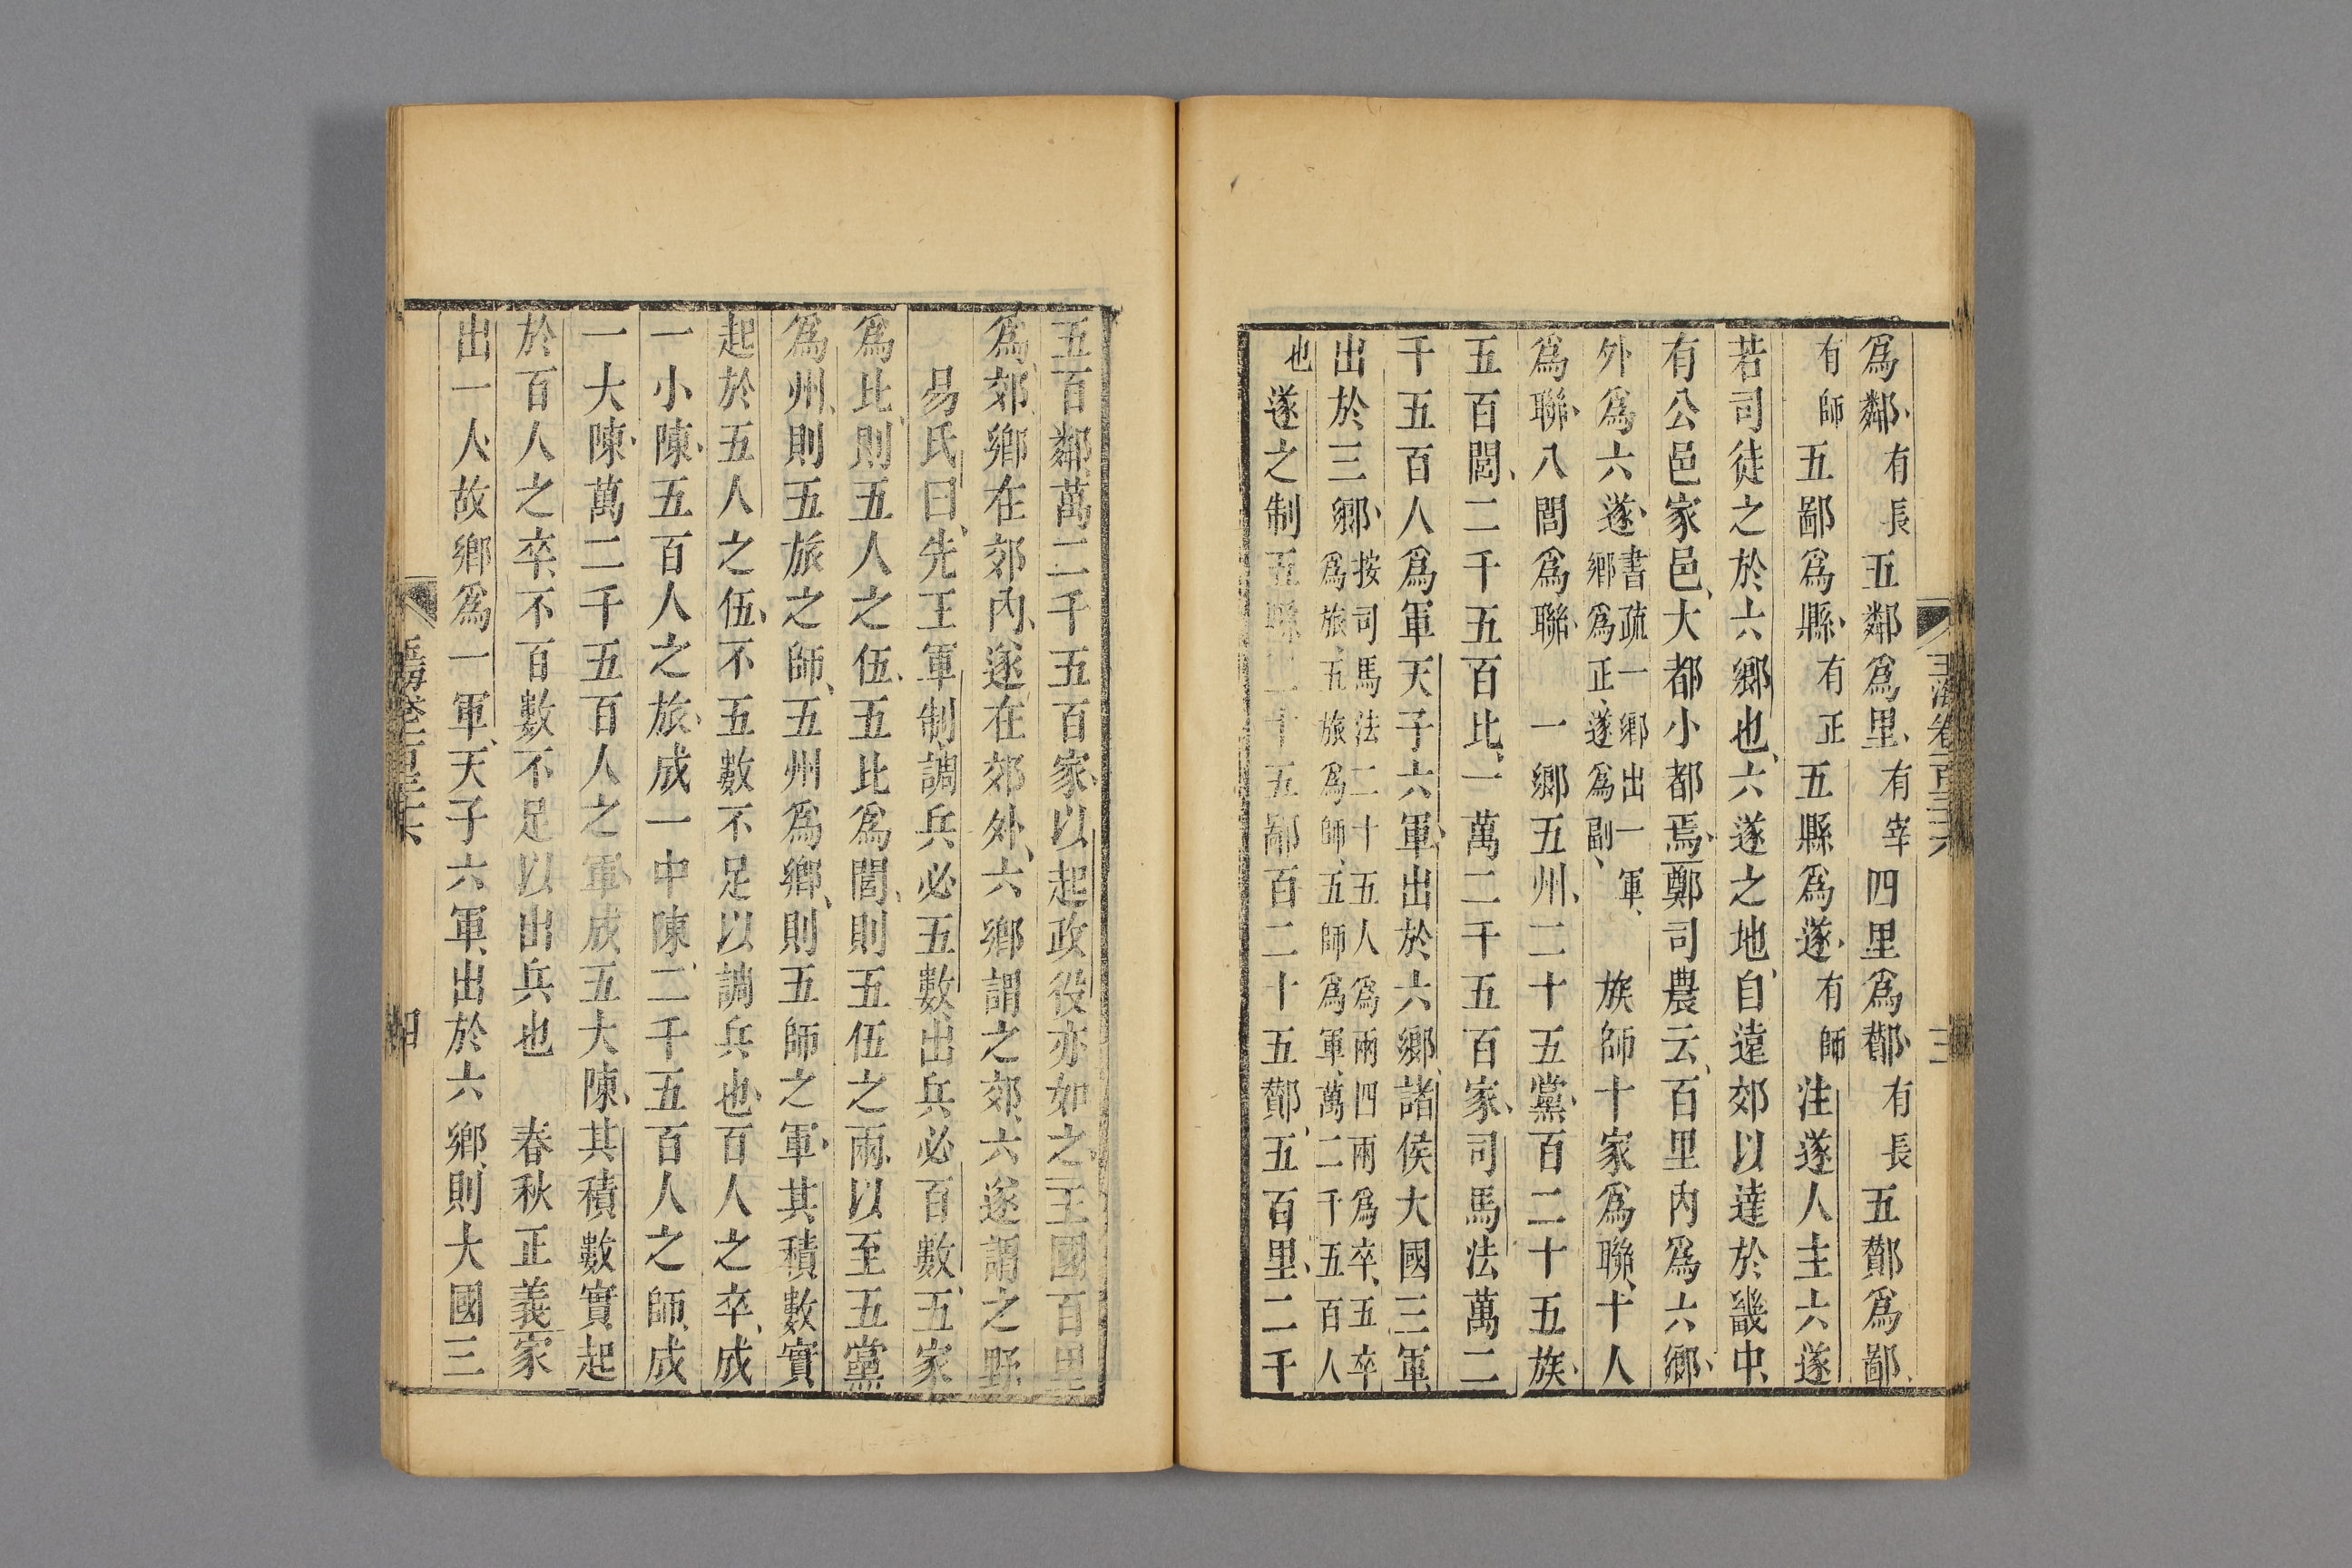 為鄰、有長五鄰為里、有宰四里為酇、有長五酇為鄙、
有師五鄙為縣、有正五縣為遂、有師注遂人主六遂
若司徒之於六鄉也、六遂之地、自遠郊以達於畿中、
有公邑家邑、大都小都焉、鄭司農云、百里內為六鄉、
外為六遂、書疏一鄉出一軍、鄉為正、遂為副、族師十家為聯、十人
為聯、八閭為聯、一鄉五州、二十五黨、百二十五族、
五百閭、二千五百比、一萬二千五百家、司馬法萬二
千五百人為軍天子六軍、出於六鄉、諸侯大國三軍、
出於三鄉、按司馬法二十五人為兩四兩為卒、五卒為旅、五旅為師、五師為軍、萬二千五百人
也遂之制五縣二十五鄙百二十五酇、五百里、二千
五百鄰、萬二千五百家、以起政役亦如之、王國百里
為郊、鄉在郊內、遂在郊外、六鄉謂之郊、六遂謂之野
易氏曰、先王軍制調兵必五數、出兵必百數、五家
為比、則五人之伍、五比為閭、則五伍之兩、以至五黨
為州、則五旅之師、五州為鄉、則五師之軍、其積數實
起於五人之伍、不五數不足以調兵也、百人之卒、成
一小陳、五百人之旅、成一中陳、二千五百人之師、成
一大陳、萬二千五百人之軍、成五大陳、其積數實起
於百人之卒、不百數不足以出兵也 春秋正義家
出一人、故鄉為一軍、天子六軍、出於六鄉、則大國三
玉海卷一百三十六
三
四